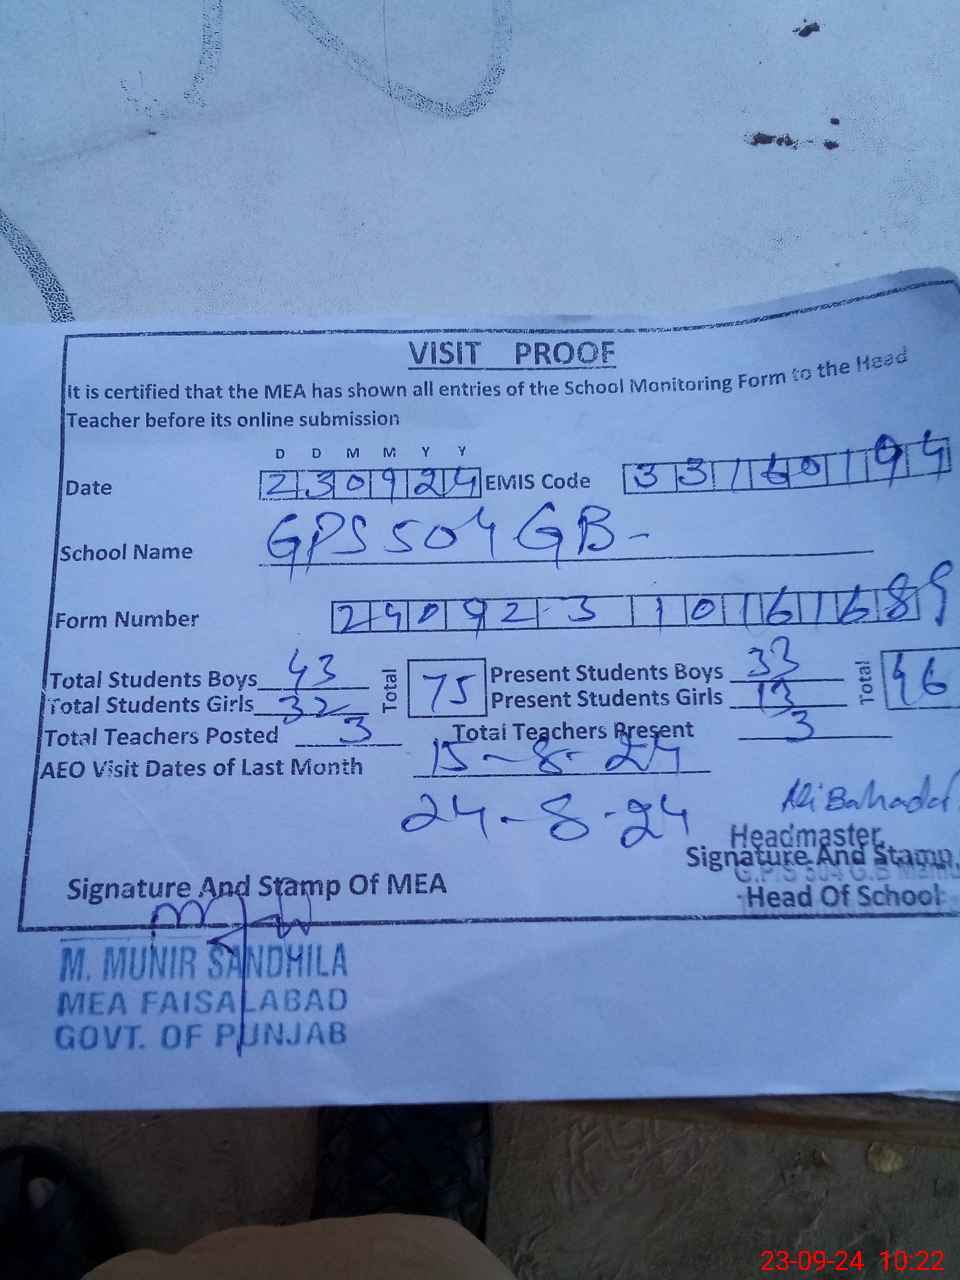 VISIT PROOF
It is certified that the MEA has shown all entries of the School Monitoring Form to the Head
Teacher before its online submission
D D M M Y Y
Date 230924 EMIS Code 33160194
School Name GPS 504 GB-
Form Number 240923 10161689
Total Students Boys 43 Total 75 Present Students Boys 33 Total 46
Total Students Girls 32 Present Students Girls 13
Total Teachers Posted 3 Total Teachers Present 3
AEO Visit Dates of Last Month 15-8-24
24-8-24
Ali Bahadar
Headmaster
Signature And Stamp
G.P.S 504 G.B
Head Of School
Signature And Stamp Of MEA
M. MUNIR SANDHILA
MEA FAISALABAD
GOVT. OF PUNJAB
23-09-24 10:22